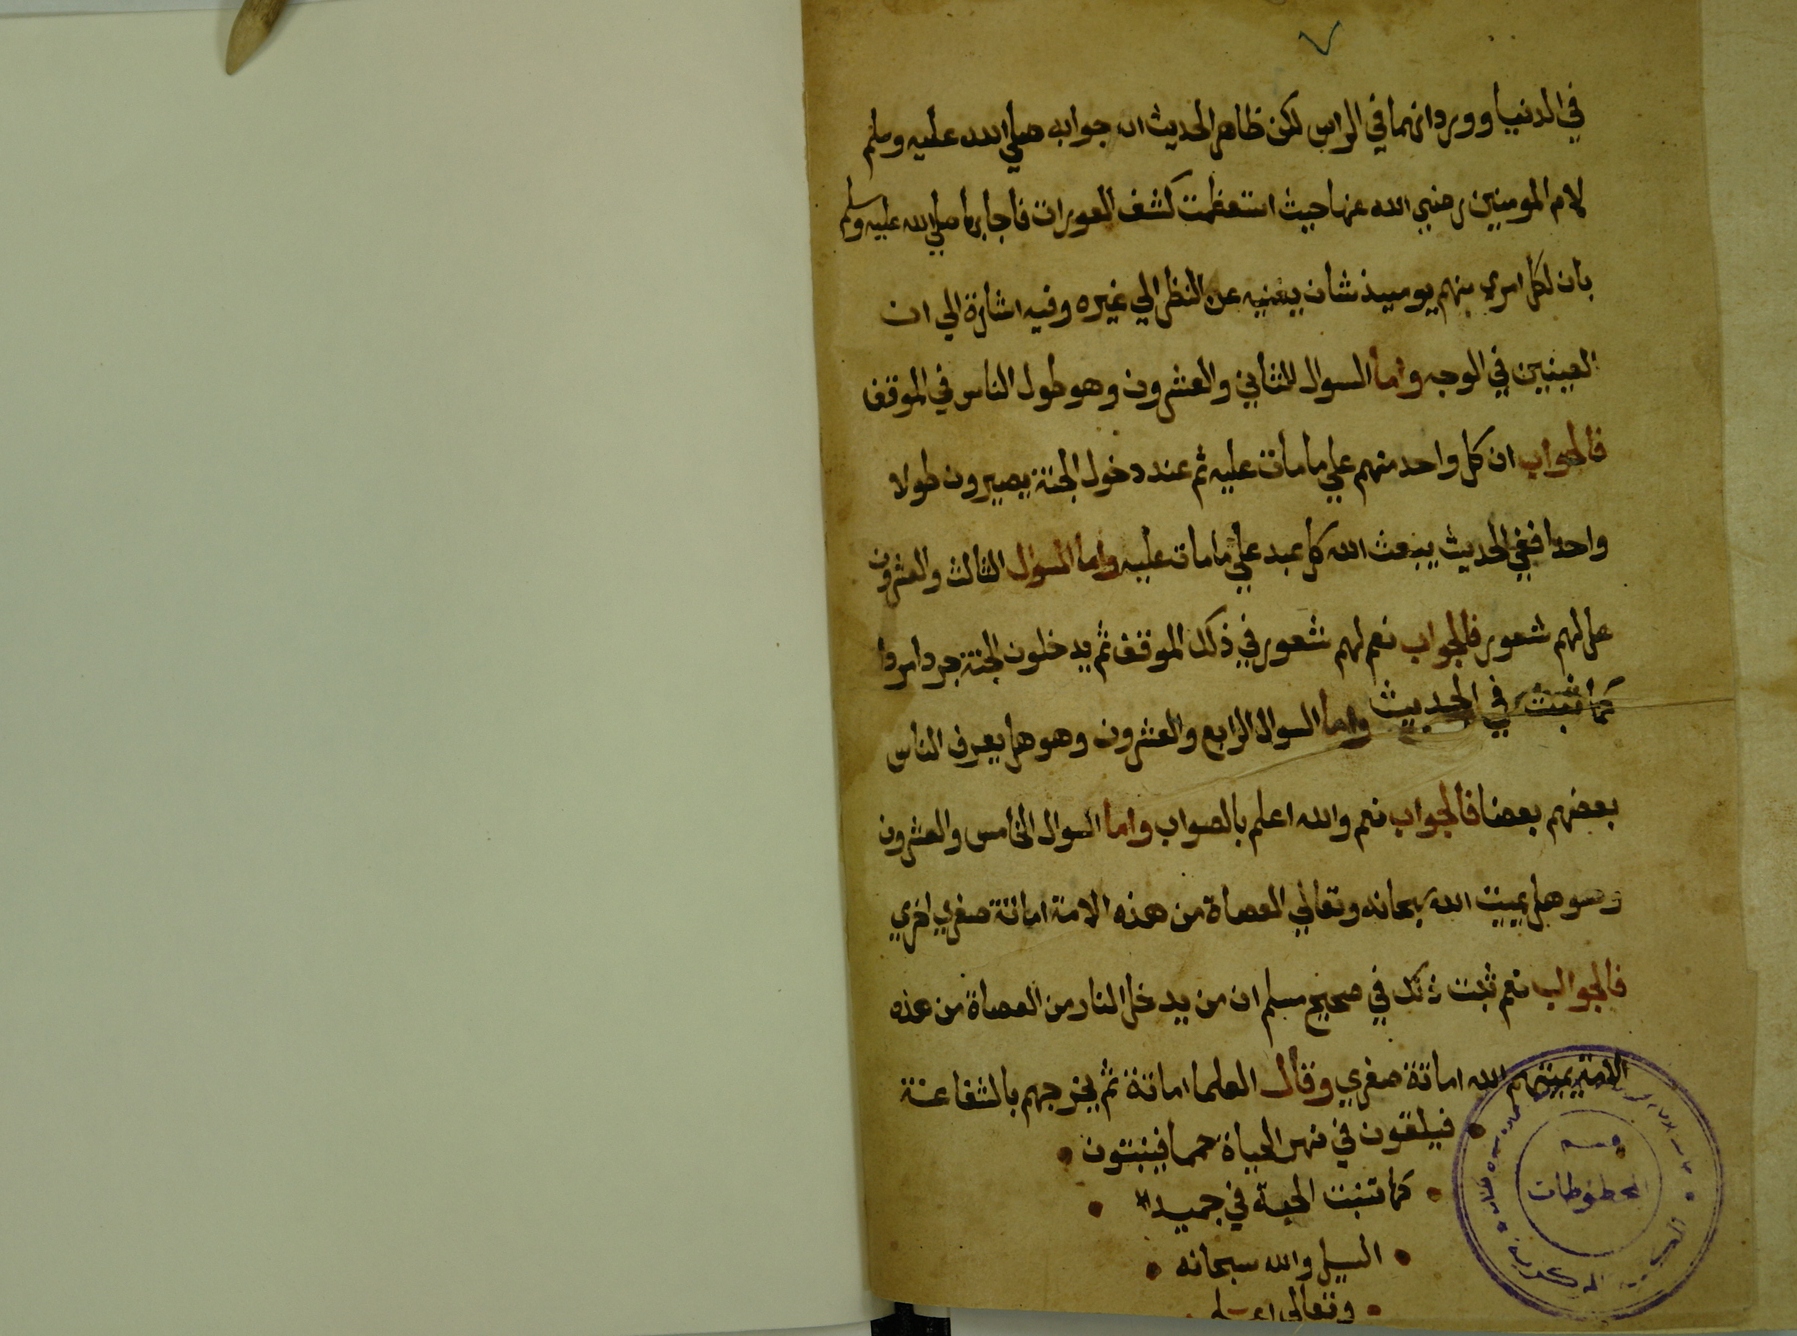 في الدنيا وورد انهما في الراس لكن ظاهر الحديث ان جوابه صلي الله عليه وسلم
لام المومنين رضي الله عنها حيث استعظمت كشف العورات فاجابها صلي الله عليه وسلم
بان لكل امري منهم يوميذ شان يغنيه عن النظر الي غيره وفيه اشارة الي ان
العينين في الوجه واما السوال الثاني والعشرون وهو طول الناس في الموقف
فالجواب ان كل واحد منهم علي ما مات عليه ثم عند دخول الجنة يصيرون طولا
واحدا ففي الحديث يبعث الله كل عبد علي ما مات عليه واما السوال الثالث والعشرون
هل لهم شعور فالجواب نعم لهم شعور في ذلك الموقف ثم يدخلون الجنة جردا مردا
كما ثبت في الحديث واما السوال الرابع والعشرون وهو هل يعرف الناس
بعضهم بعضا فالجواب نعم والله اعلم بالصواب واما السوال الخامس والعشرون
وهو هل يميت الله سبحانه وتعالي العصاة من هذه الامة اماتة صغري اخري
فالجواب نعم ثبت ذلك في صحيح مسلم ان من يدخل النار من العصاة من هذه
الامة يميتهم الله اماتة صغري وقال العلما اماتة ثم يخرجهم بالشفاعة
فيلقون في نهر الحياة حمما فينبتون
كما تنبت الحبة في حميد
السيل والله سبحانه
وتعالي اعلم
قسم
المخطوطات